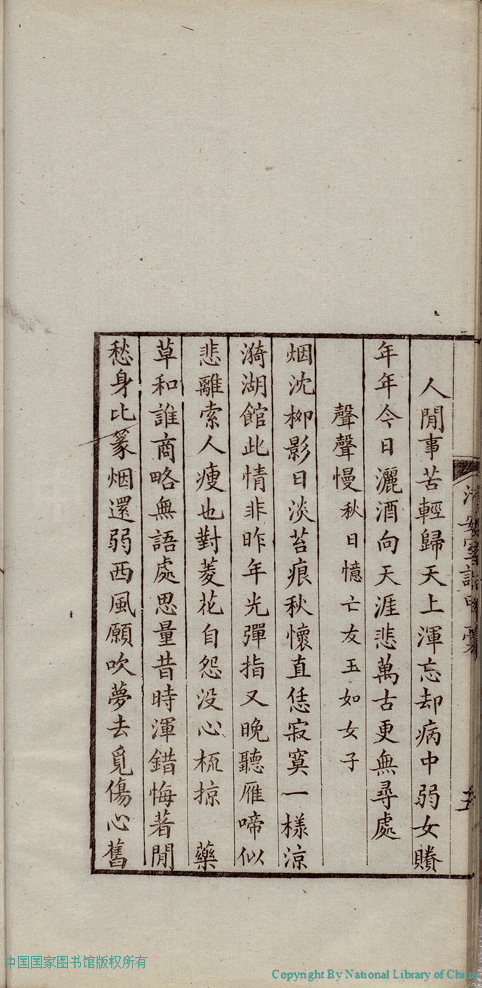 人閒事苦輕歸天上渾忘却病中弱女賸
年年今日灑酒向天涯悲萬古更無尋處
聲聲慢秋日憶亡友玉如女子
烟沈柳影日淡苔痕秋懷直恁寂寞一樣涼
漪湖館此情非昨年光彈指又晚聽雁啼似
悲離索人瘦也對菱花自怨没心梳掠 藥
草和誰商略無語處思量昔時渾錯悔著閒
愁身比篆烟還弱西風願吹夢去覓傷心舊
中国国家图书馆版权所有
Copyright By National Library of China